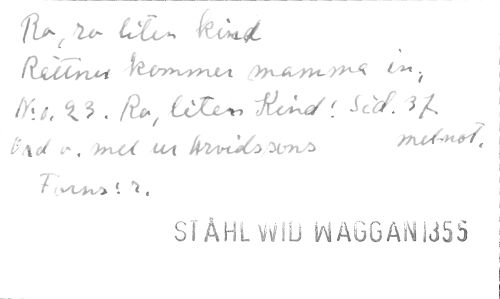 Ro, ro liten kind
Rättnu kommer mamma in,
N:o. 23. Ro, liten Kind! Sid. 37
Ord o. mel ur Arvidssons melnot.
Forns: r.
STÅHL WID WAGGAN 1855